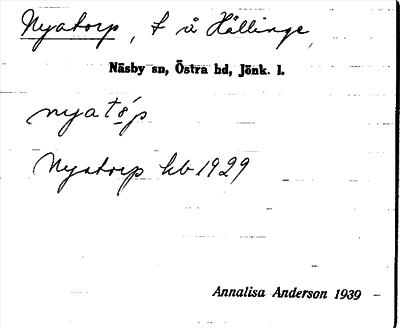 Nyatorp, t å Hällinge
Näsby sn, Östra hd, Jönk. l.
nyató̠p
Nyatorp hb 1929
Annalisa Anderson 1939